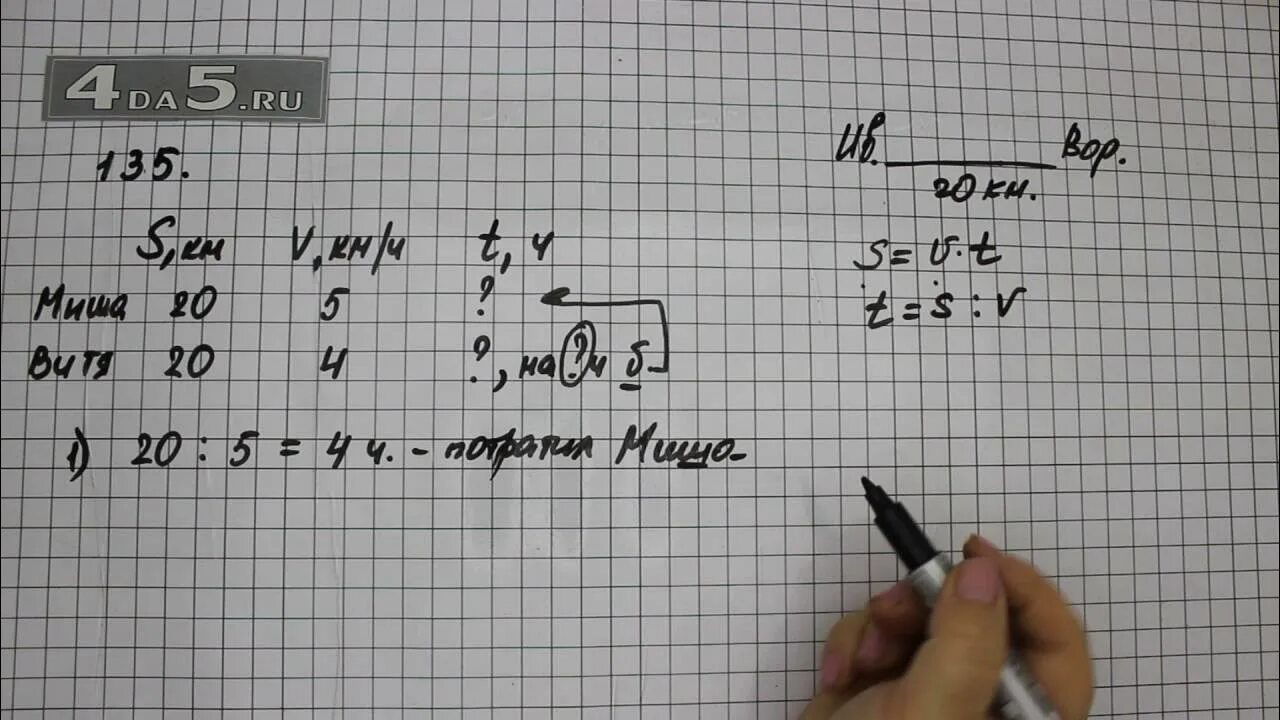 4DA5.RU
135.
Ив. Вор.
20 км.
S, км V, км/ч t, ч
Миша 20 5 ?
Витя 20 4 ?, на ? ч б.
S = v · t
t = S : V
1) 20 : 5 = 4 ч. - потратил Миша.